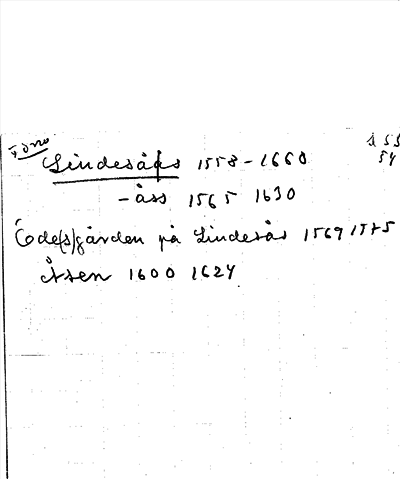 Lindesås 1558-1660
-åss 1565 1630
Öde(s)gården på Lindesås 1569 1575
Åsen 1600 1624